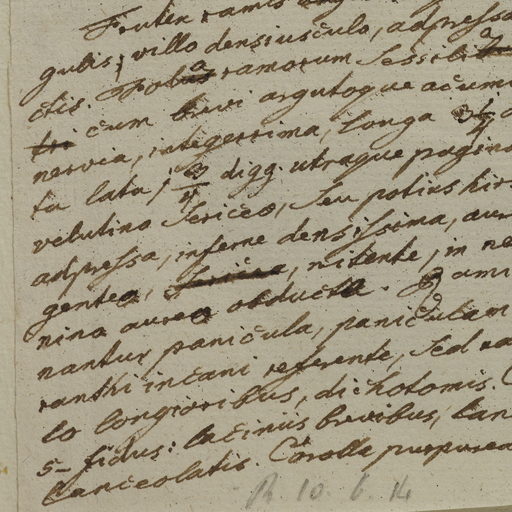 Frutex ramis
gulis; villo densiusculo, adpressa
ctis. Folia ramorum sessilia
cum brevi argutoque acumi
nervia, integerrima, longa 3½
ta lata, digg. utraque pagina
velutino sericea, seu potius hir
adpressa, inferne densissima, aur
gentea, nitente, in ne
nina aurea obducta. Rami
nantur panicula, paniculam
ranthi incani referente, sed ra
lo longioribus, dichotomis.
5-fidus: laciniis brevibus, lan
lanceolatis. Corolla purpurea
R. 10. 6. 14